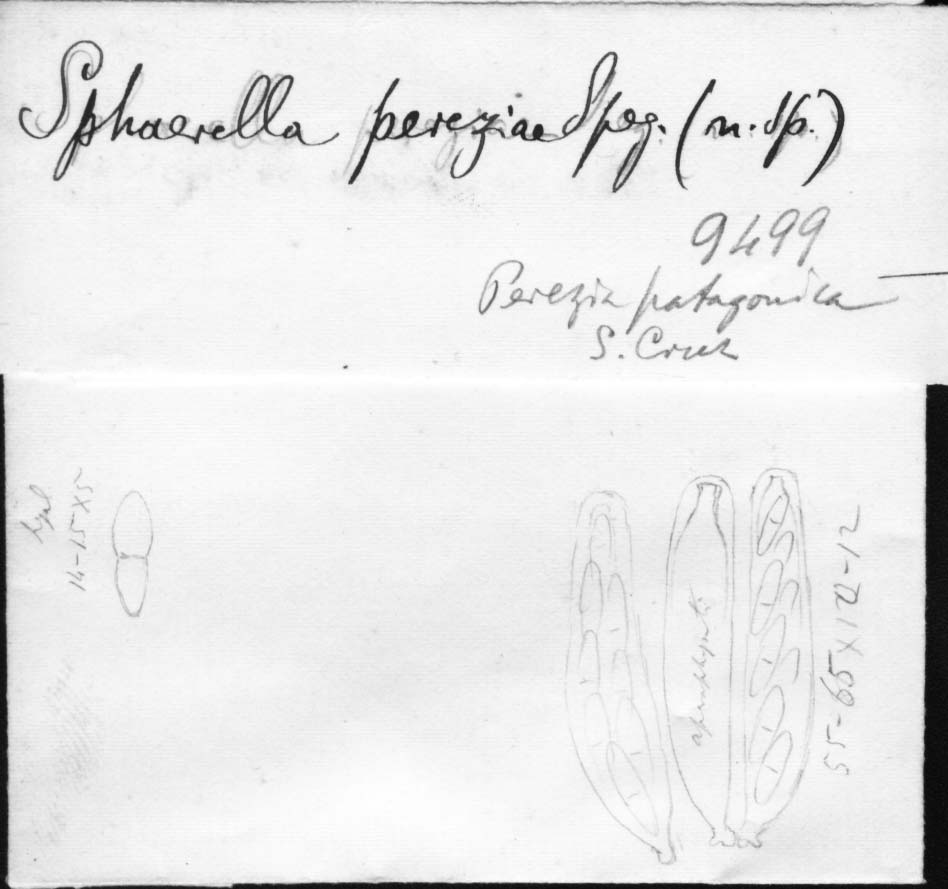 Sphaerella pereziae Speg. (n. sp.)
9499
Perezia patagonica
S. Cruz
hyal
14-15 X 5
aparaphysati
55-65 X 12-12